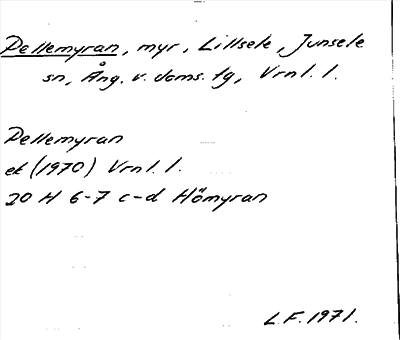 Pellemyran, myr, Lillsele, Junsele
sn, Ång. v. doms. tg, Vrnl. l.
Pellemyran
ek (1970) Vrnl. l.
20 H 6-7 c-d Hömyran
L.F. 1971.